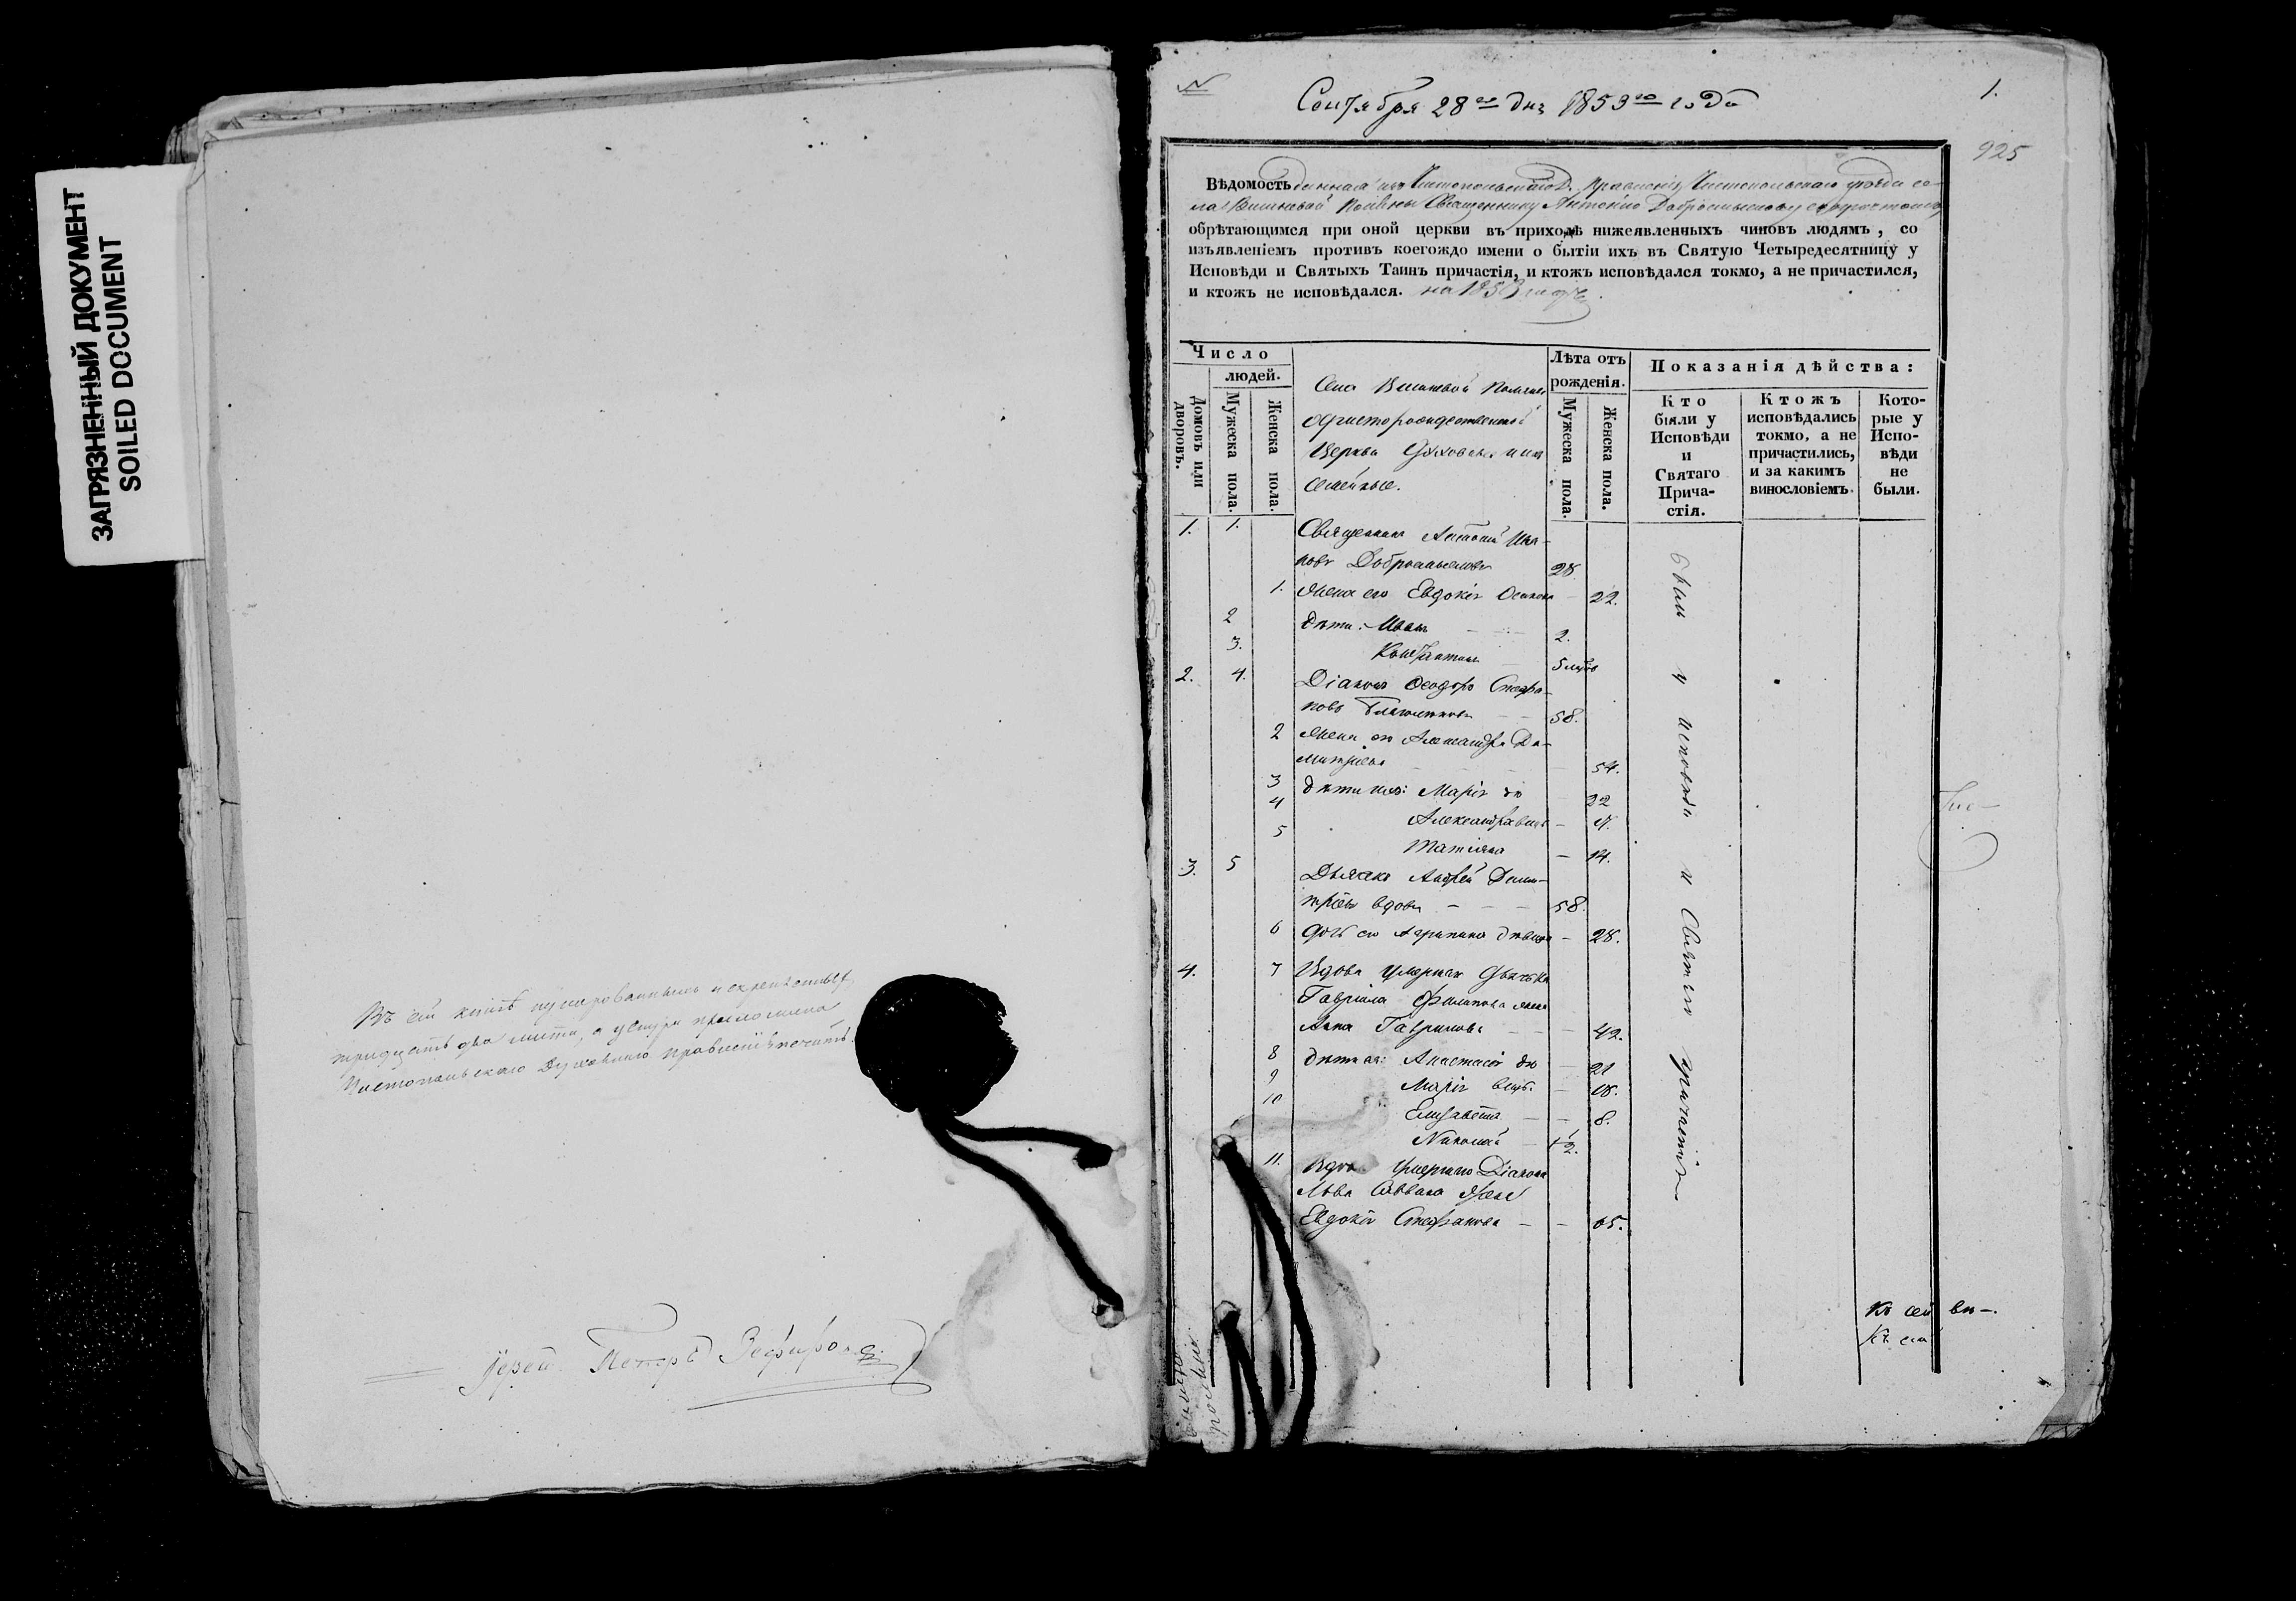 ЗАГРЯЗНЕННЫЙ ДОКУМЕНТ
SOILED DOCUMENT
Въ сей книгѣ нумерованныхъ и скрепленныхъ
тридцать два листа, а у сшура приложена
Чистопольскаго Духовнаго Правленія печать.
Іерей Петръ Зефировъ
№
Сентября 28го дня 1853го года
1.
925
Вѣдомость данная изъ Чистопольскаго Д. Правленія Чистопольскаго уѣзда се-
ла Вишневой Поляны Священнику Антонію Добросмыслову
обрѣтающимся при оной церкви въ приходѣ нижеявленныхъ чиновъ людямъ, со
изъявленіемъ противъ коегождо имени о бытіи ихъ въ Святую Четыредесятницу у
Исповѣди и Святыхъ Таинъ причастія, и ктожъ исповѣдался токмо, а не причастился,
и ктожъ не исповѣдался. на 1853 годъ.
Число
людей.
Домовъ или дворовъ.
Мужеска пола.
Женска пола.
Села Вишневой Поляны
Христорождественской
Церкви Духовные и ихъ
Семейные.
Лѣта отъ рожденія.
Мужеска пола.
Женска пола.
Показанія дѣйства:
Кто были у Исповѣди и Святаго Причастія.
Ктожъ исповѣдались токмо, а не причастились, и за какимъ винословіемъ.
Которые у Исповѣди не были.
1. 1. Священникъ Антоній Ива-
новъ Добросмысловъ 28.
1. Жена его Евдокія Осипова 22.
2 Дѣти: Иванъ 2.
3. Константинъ 5 мѣс
2. 4. Діаконъ Ѳеодоръ Стефа-
новъ 58.
2 Жена его Александра Ди-
митріева 54.
3 Дѣти ихъ: Марія дѣ 22
4 Александра вицы
5 Татіана 14.
3. 5 Дьячекъ Андрей Дими-
тріевъ вдовъ 58.
6 Дочь его Агрипина дѣвица 28.
4. 7 Вдова умершаго Дьячька
Гавріила Филипова жена
Анна Гаврилова 42.
8 Дѣти ея: Анастасія дѣ 21
9 Марія вицы. 18.
10 Елизавета 8.
Николай 12.
11. Вдова умершаго Діакона
Льва Саввина жена
Евдокія Стефанова 65.
были у исповѣди и Святаго причастія
Къ сей вѣ-
Къ сей